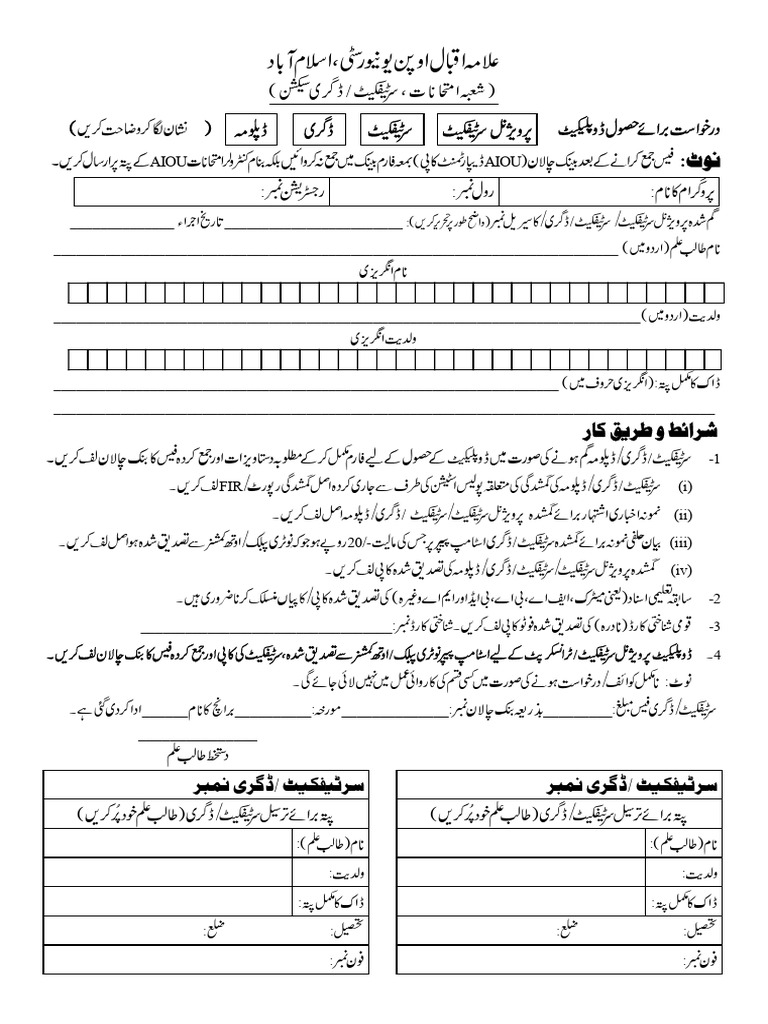 علامہ اقبال اوپن یونیورسٹی، اسلام آباد
(شعبہ امتحانات، سرٹیفکیٹ/ڈگری سیکشن)
درخواست برائے حصول ڈوپلیکیٹ پرویژنل سرٹیفکیٹ سرٹیفکیٹ ڈگری ڈپلومہ (نشان لگا کر وضاحت کریں)
نوٹ: فیس جمع کرانے کے بعد بینک چالان (AIOU ڈیپارٹمنٹ کاپی) بمعہ فارم بینک میں جمع نہ کروائیں بلکہ بنام کنٹرولر امتحانات AIOU کے پتہ پر ارسال کریں۔
پروگرام کا نام: رول نمبر: رجسٹریشن نمبر:
گم شدہ پرویژنل سرٹیفکیٹ/ سرٹیفکیٹ/ڈگری/کا سیریل نمبر (واضح طور پر تحریر کریں): ____________ تاریخ اجراء ____________
نام طالب علم (اردو میں) ____________
نام انگریزی
ولدیت (اردو میں) ____________
ولدیت انگریزی
ڈاک کا مکمل پتہ: (انگریزی حروف میں) ____________
شرائط و طریق کار
1- سرٹیفکیٹ/ڈگری/ڈپلومہ گم ہونے کی صورت میں ڈوپلیکیٹ کے حصول کے لیے فارم مکمل کر کے مطلوبہ دستاویزات اور جمع کردہ فیس کا بنک چالان لف کریں۔
(i) سرٹیفکیٹ/ڈگری/ڈپلومہ کی گمشدگی کی متعلقہ پولیس اسٹیشن کی طرف سے جاری کردہ اصل گمشدگی رپورٹ/FIR لف کریں۔
(ii) نمونہ اخباری اشتہار برائے گمشدہ پرویژنل سرٹیفکیٹ/سرٹیفکیٹ /ڈگری/ڈپلومہ اصل لف کریں۔
(iii) بیان حلفی نمونہ برائے گمشدہ سرٹیفکیٹ/ڈگری اسٹامپ پیپر پر جس کی مالیت -/20 روپے ہو جو کہ نوٹری پبلک/اوتھ کمشنر سے تصدیق شدہ ہو اصل لف کریں۔
(iv) گمشدہ پرویژنل سرٹیفکیٹ/سرٹیفکیٹ/ڈگری/ڈپلومہ کی تصدیق شدہ کاپی لف کریں۔
2- سابقہ تعلیمی اسناد (یعنی میٹرک، ایف اے، بی اے، بی ایڈ اور ایم اے وغیرہ) کی تصدیق شدہ کاپی/کاپیاں منسلک کرنا ضروری ہیں۔
3- قومی شناختی کارڈ (نادرہ) کی تصدیق شدہ فوٹو کاپی لف کریں۔ شناختی کارڈ نمبر: ____________
4- ڈوپلیکیٹ پرویژنل سرٹیفکیٹ/ٹرانسکرپٹ کے لیے اسٹامپ پیپر نوٹری پبلک/اوتھ کمشنر سے تصدیق شدہ، سرٹیفکیٹ کی کاپی اور جمع کردہ فیس کا بنک چالان لف کریں۔
نوٹ: نامکمل کوائف/درخواست ہونے کی صورت میں کسی قسم کی کاروائی عمل میں نہیں لائی جائے گی۔
سرٹیفکیٹ/ڈگری فیس مبلغ: ________ بذریعہ بنک چالان نمبر: ________ مورخہ: ________ برانچ کا نام ________ ادا کر دی گئی ہے۔
دستخط طالب علم
سرٹیفکیٹ/ڈگری نمبر
پتہ برائے ترسیل سرٹیفکیٹ/ڈگری (طالب علم خود پُر کریں)
نام (طالب علم):
ولدیت:
ڈاک کا مکمل پتہ:
تحصیل: ضلع:
فون نمبر:
سرٹیفکیٹ/ڈگری نمبر
پتہ برائے ترسیل سرٹیفکیٹ/ڈگری (طالب علم خود پُر کریں)
نام (طالب علم):
ولدیت:
ڈاک کا مکمل پتہ:
تحصیل: ضلع:
فون نمبر: